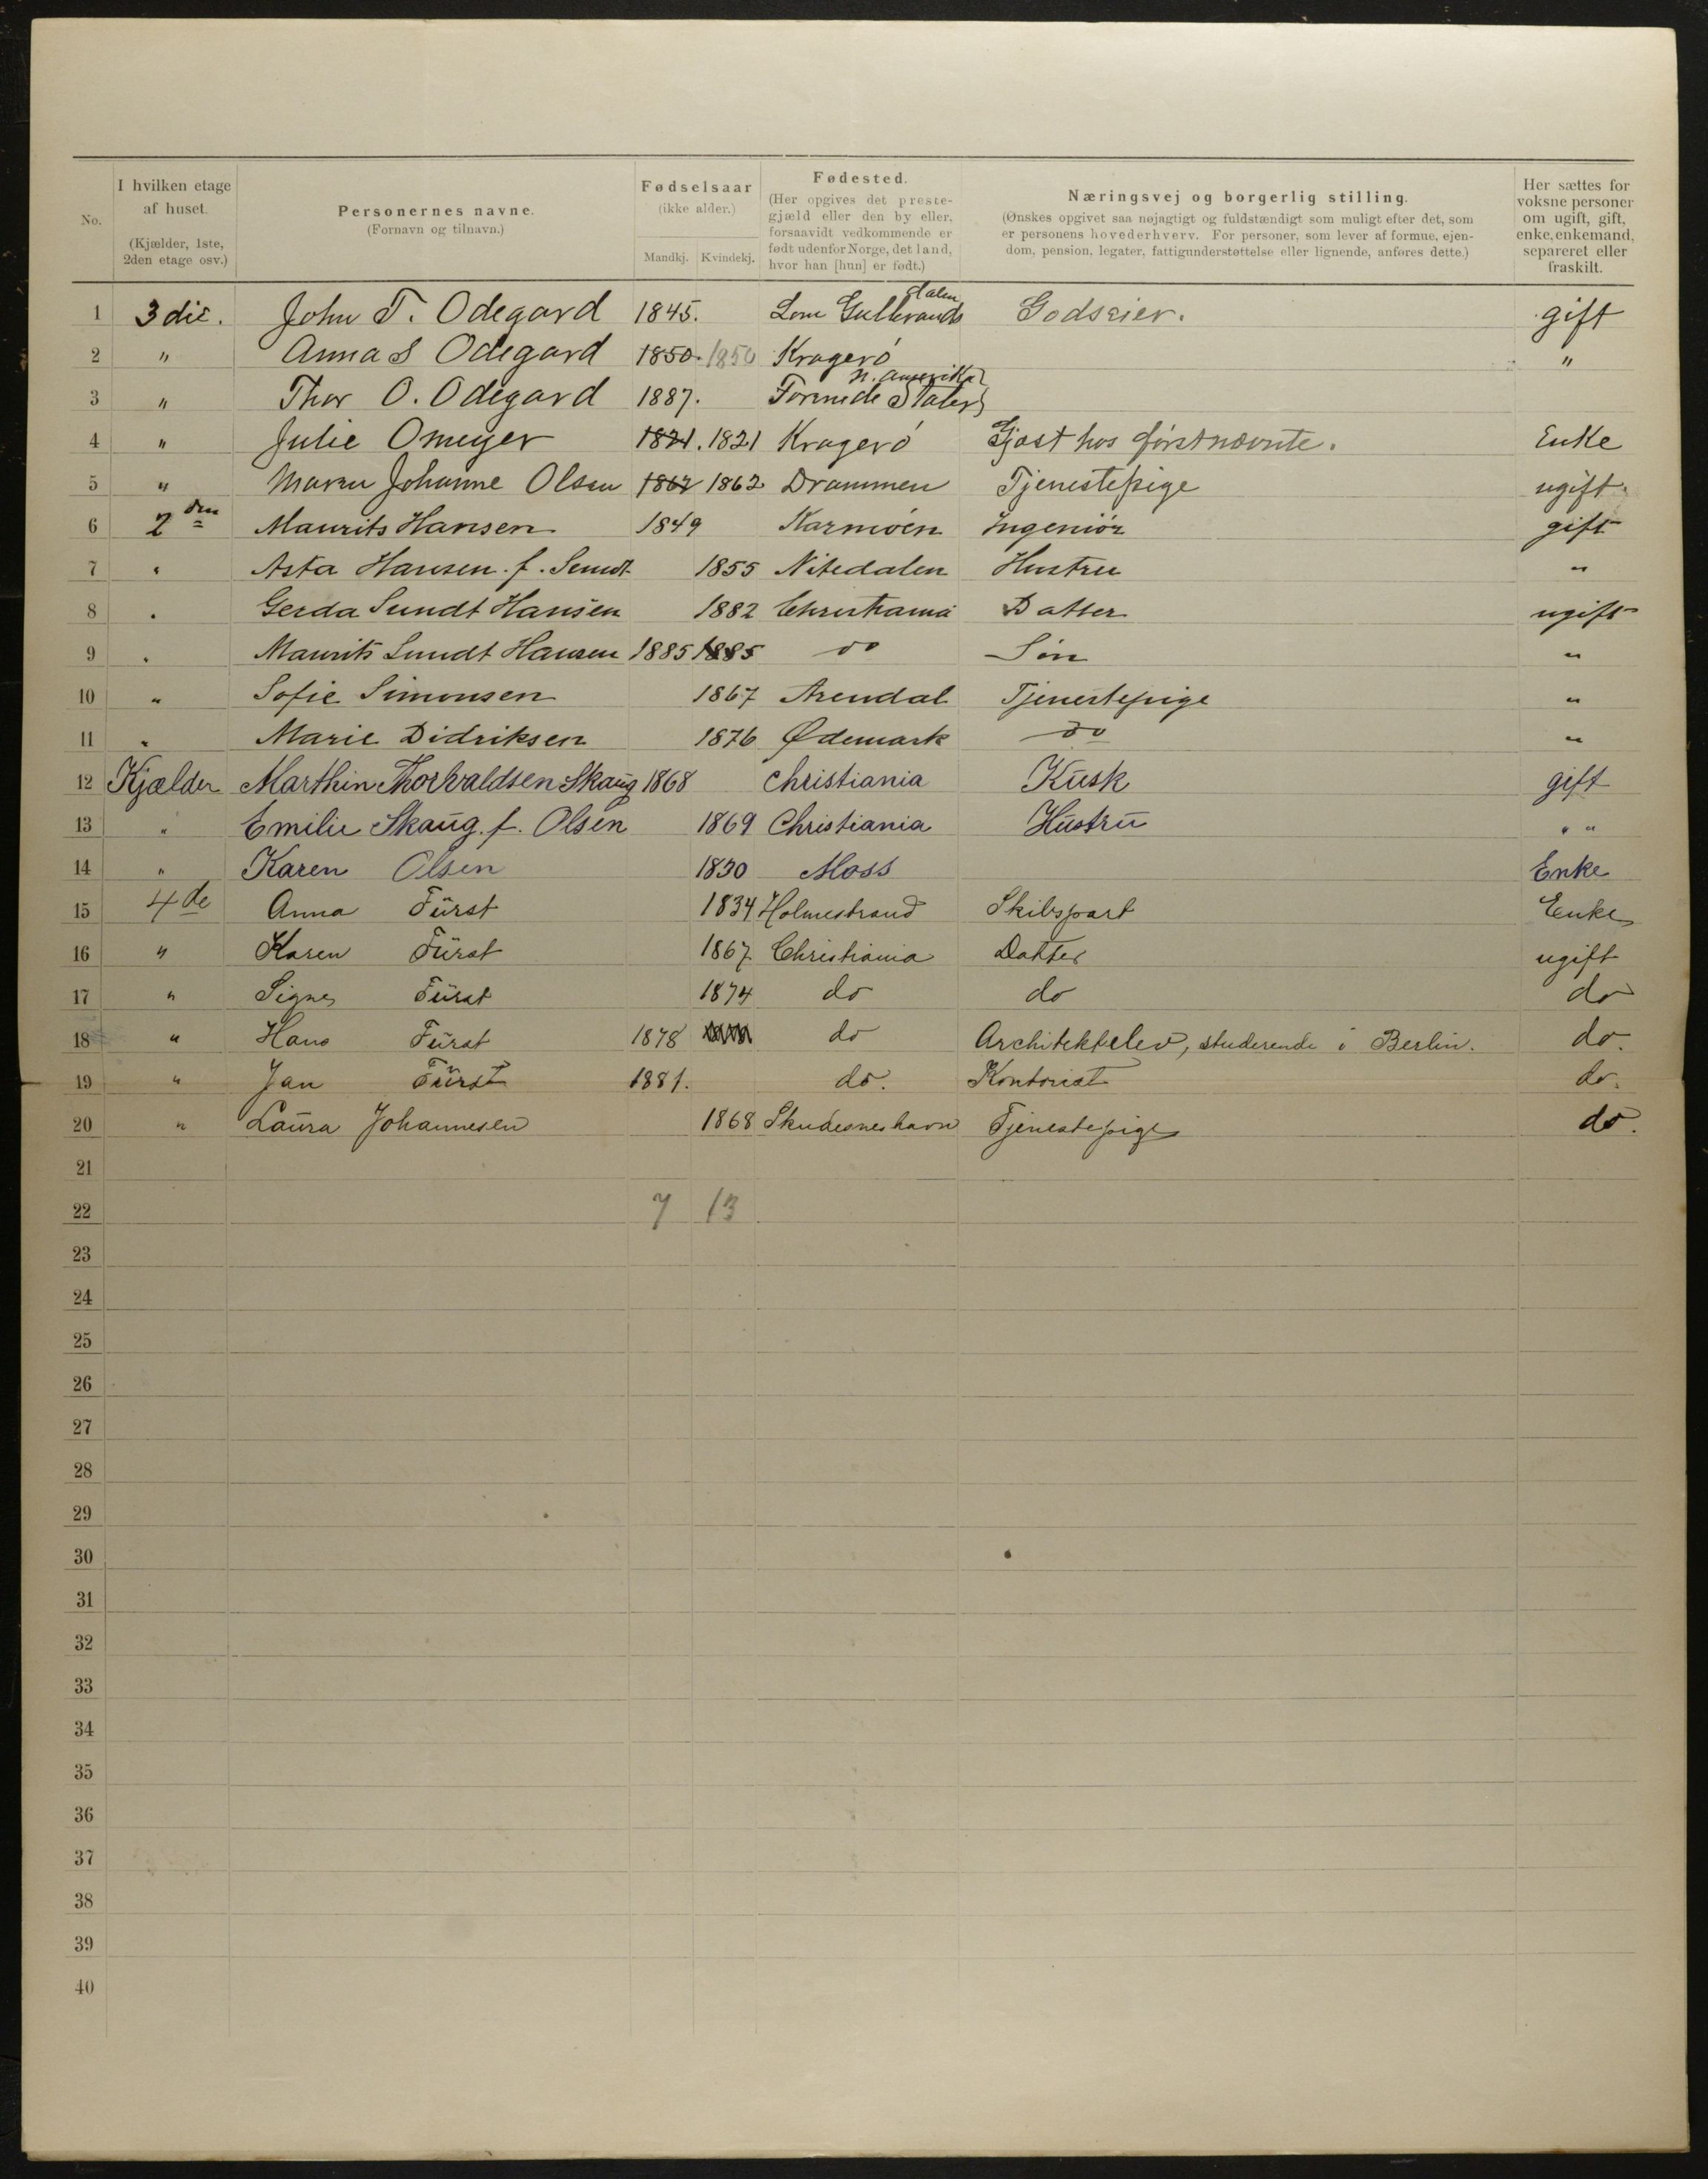 No.
I hvilken etage af huset.
(Kjælder, 1ste, 2den etage osv.)
Personernes navne.
(Fornavn og tilnavn.)
Fødselsaar
(ikke alder.)
Mandkj. Kvindekj.
Fødested.
(Her opgives det preste-
gjæld eller den by eller,
forsaavidt vedkommende er
født udenfor Norge, det land,
hvor han [hun] er født.)
Næringsvej og borgerlig stilling.
(Ønskes opgivet saa nøjagtigt og fuldstændigt som muligt efter det, som
er personens hovederhverv. For personer, som lever af formue, ejen-
dom, pension, legater, fattigunderstøttelse eller lignende, anføres dette.)
Her sættes for
voksne personer
om ugift, gift,
enke, enkemand,
separeret eller
fraskilt.
1 3die. John T. Odegard 1845. Lom Gulbrandsdalen Godseier. gift
2 " Anna S Odegard 1850. 1850 Kragerö "
3 " Thor O. Odegard 1887. Forenede Stater N. Amerika
4 " Julie Omeyer 1821. 1821 Kragerö Gjæst hos førstnævnte. Enke
5 " Maren Johanne Olsen 1862 1862 Drammen Tjenestepige ugift.
6 2den Maurits Hansen 1849 Karmöen Ingeniör gift
7 " Asta Hansen f. Sundt 1855 Nitedalen Hustru "
8 " Gerda Sundt Hansen 1882 Christiania Datter ugift
9 " Maurits Sundt Hansen 1885 1885 do Sön "
10 " Sofie Simonsen 1867 Arendal Tjenestepige "
11 " Marie Didriksen 1876 Ødemark do "
12 Kjælder Marthin Thorvaldsen Skaug 1868 Christiania Kusk gift
13 " Emilie Skaug. f. Olsen 1869 Christiania Hustru " "
14 " Karen Olsen 1830 Moss Enke
15 4de Anna Fürst 1834 Holmestrand Skibspart Enke
16 " Karen Fürst 1867 Christiania Datter ugift
17 " Signe Fürst 1874 do do do
18 " Hans Fürst 1878 do Architektelev, studerende i Berlin. do.
19 " Jan Fürst 1881. do. Kontorist do.
20 " Laura Johannesen 1868 Skudesneshavn Tjenestepige do.
21
22 7 13
23
24
25
26
27
28
29
30
31
32
33
34
35
36
37
38
39
40